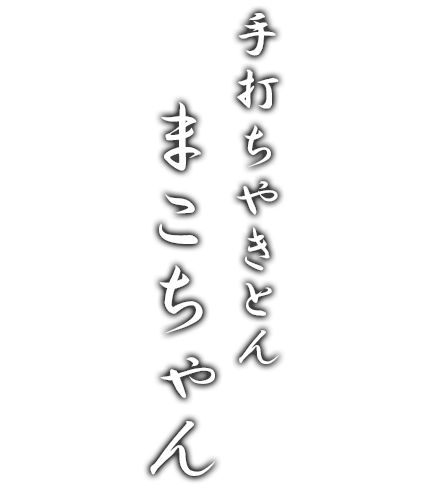 手打ちやきとん
まこちゃん